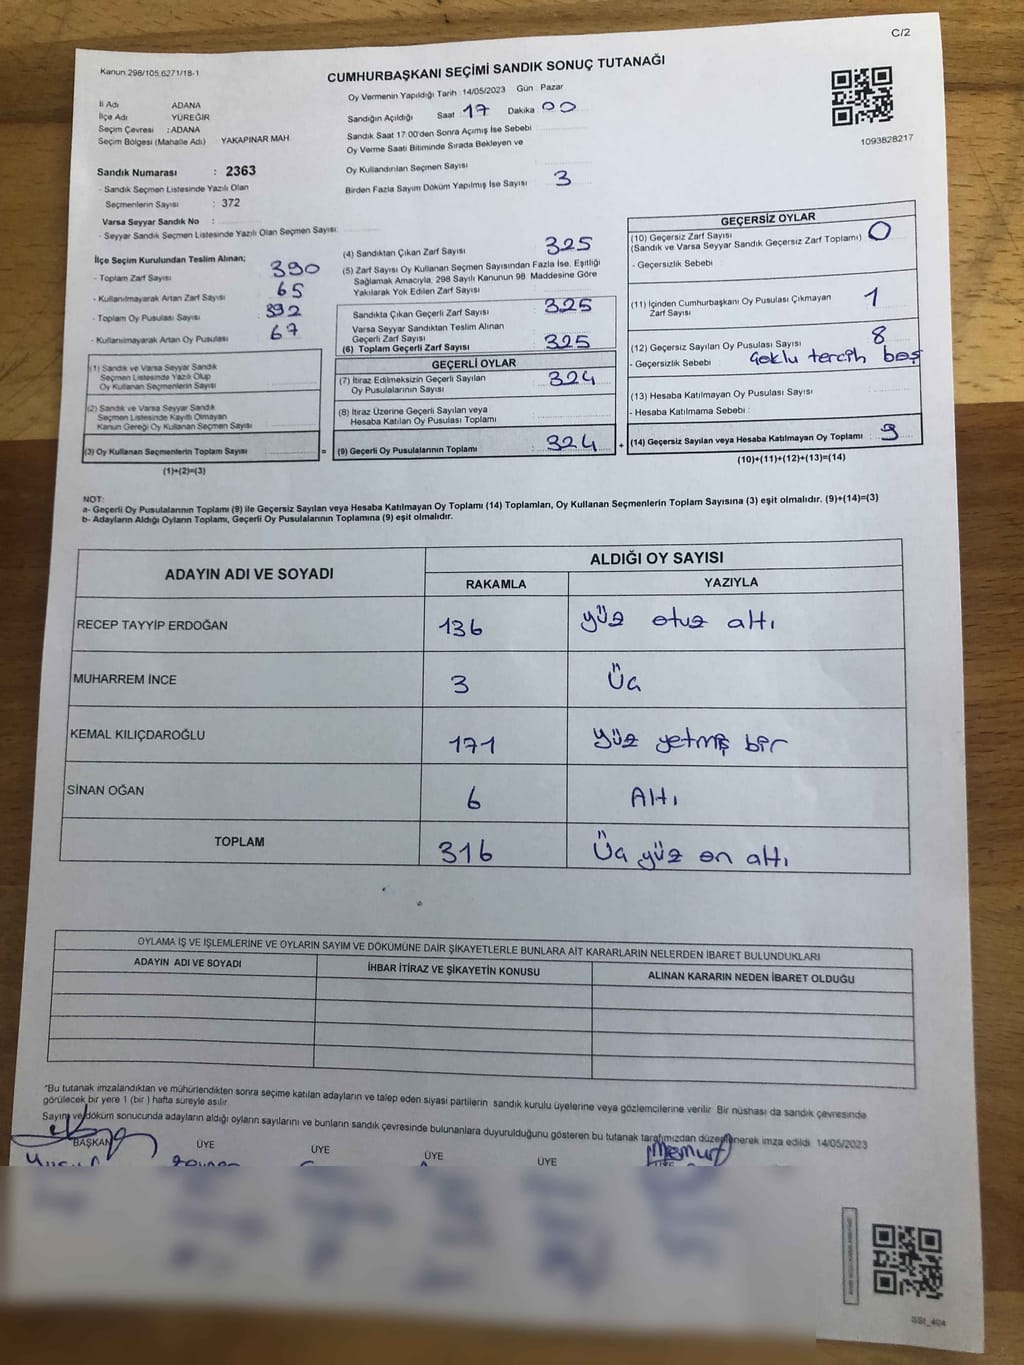 C/2
Kanun 298/105,6271/18-1
CUMHURBAŞKANI SEÇİMİ SANDIK SONUÇ TUTANAĞI
İl Adı ADANA
İlçe Adı YÜREĞİR
Seçim Çevresi : ADANA
Seçim Bölgesi (Mahalle Adı) YAKAPINAR MAH
Sandık Numarası : 2363
- Sandık Seçmen Listesinde Yazılı Olan
Seçmenlerin Sayısı : 372
Varsa Seyyar Sandık No :
- Seyyar Sandık Seçmen Listesinde Yazılı Olan Seçmen Sayısı:
Oy Vermenin Yapıldığı Tarih : 14/05/2023 Gün : Pazar
Sandığın Açıldığı Saat 17 Dakika 00
Sandık Saat 17:00'den Sonra Açılmış İse Sebebi
Oy Verme Saati Bitiminde Sırada Bekleyen ve
Oy Kullandırılan Seçmen Sayısı
Birden Fazla Sayım Döküm Yapılmış İse Sayısı 3
1093828217
İlçe Seçim Kurulundan Teslim Alınan;
- Toplam Zarf Sayısı 390
- Kullanılmayarak Artan Zarf Sayısı 65
- Toplam Oy Pusulası Sayısı 392
- Kullanılmayarak Artan Oy Pusulası 67
(1) Sandık ve Varsa Seyyar Sandık
Seçmen Listesinde Yazılı Olup
Oy Kullanan Seçmenlerin Sayısı
(2) Sandık ve Varsa Seyyar Sandık
Seçmen Listesinde Kayıtlı Olmayan
Kanun Gereği Oy Kullanan Seçmen Sayısı
(3) Oy Kullanan Seçmenlerin Toplam Sayısı
(1)+(2)=(3)
(4) Sandıktan Çıkan Zarf Sayısı 325
(5) Zarf Sayısı Oy Kullanan Seçmen Sayısından Fazla İse, Eşitliği
Sağlamak Amacıyla, 298 Sayılı Kanunun 98. Maddesine Göre
Yakılarak Yok Edilen Zarf Sayısı
Sandıkta Çıkan Geçerli Zarf Sayısı 325
Varsa Seyyar Sandıktan Teslim Alınan
Geçerli Zarf Sayısı
(6) Toplam Geçerli Zarf Sayısı 325
GEÇERLİ OYLAR
(7) İtiraz Edilmeksizin Geçerli Sayılan
Oy Pusulalarının Sayısı : 324
(8) İtiraz Üzerine Geçerli Sayılan veya
Hesaba Katılan Oy Pusulası Toplamı
= (9) Geçerli Oy Pusulalarının Toplamı : 324 +
GEÇERSİZ OYLAR
(10) Geçersiz Zarf Sayısı
(Sandık ve Varsa Seyyar Sandık Geçersiz Zarf Toplamı) 0
- Geçersizlik Sebebi
(11) İçinden Cumhurbaşkanı Oy Pusulası Çıkmayan
Zarf Sayısı 1
(12) Geçersiz Sayılan Oy Pusulası Sayısı 8
- Geçersizlik Sebebi Çoklu tercih boş
(13) Hesaba Katılmayan Oy Pusulası Sayısı
- Hesaba Katılmama Sebebi :
(14) Geçersiz Sayılan veya Hesaba Katılmayan Oy Toplamı 9
(10)+(11)+(12)+(13)=(14)
NOT:
a- Geçerli Oy Pusulalarının Toplamı (9) ile Geçersiz Sayılan veya Hesaba Katılmayan Oy Toplamı (14) Toplamları, Oy Kullanan Seçmenlerin Toplam Sayısına (3) eşit olmalıdır. (9)+(14)=(3)
b- Adayların Aldığı Oyların Toplamı, Geçerli Oy Pusulalarının Toplamına (9) eşit olmalıdır.
ADAYIN ADI VE SOYADI ALDIĞI OY SAYISI
RAKAMLA YAZIYLA
RECEP TAYYİP ERDOĞAN 136 yüz otuz altı
MUHARREM İNCE 3 Üç
KEMAL KILIÇDAROĞLU 171 yüz yetmiş bir
SİNAN OĞAN 6 Altı
TOPLAM 316 Üç yüz on altı
OYLAMA İŞ VE İŞLEMLERİNE VE OYLARIN SAYIM VE DÖKÜMÜNE DAİR ŞİKAYETLERLE BUNLARA AİT KARARLARIN NELERDEN İBARET BULUNDUKLARI
ADAYIN ADI VE SOYADI İHBAR İTİRAZ VE ŞİKAYETİN KONUSU ALINAN KARARIN NEDEN İBARET OLDUĞU
*Bu tutanak imzalandıktan ve mühürlendikten sonra seçime katılan adayların ve talep eden siyasi partilerin sandık kurulu üyelerine veya gözlemcilerine verilir. Bir nüshası da sandık çevresinde
görülecek bir yere 1 (bir) hafta süreyle asılır.
Sayım ve döküm sonucunda adayların aldığı oyların sayılarını ve bunların sandık çevresinde bulunanlara duyurulduğunu gösteren bu tutanak tarafımızdan düzenlenerek imza edildi. 14/05/2023
BAŞKAN ÜYE ÜYE ÜYE ÜYE